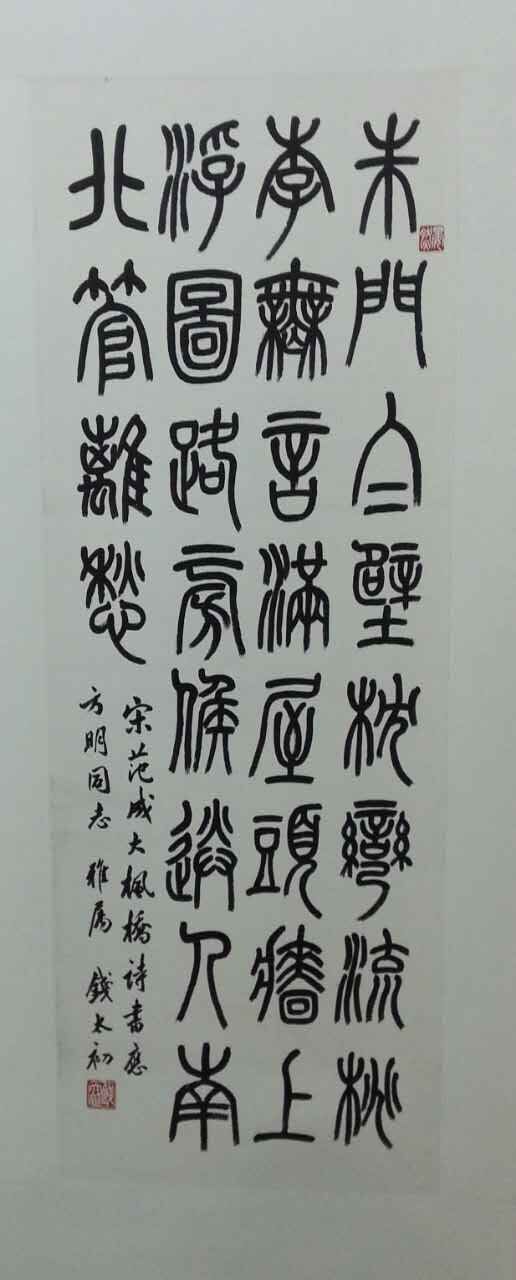 朱門白壁枕彎流桃
李無言滿屋頭牆上
浮圖路旁候送人南
北管離愁
宋范成大楓橋詩書應
方明同志 雅屬 錢太初